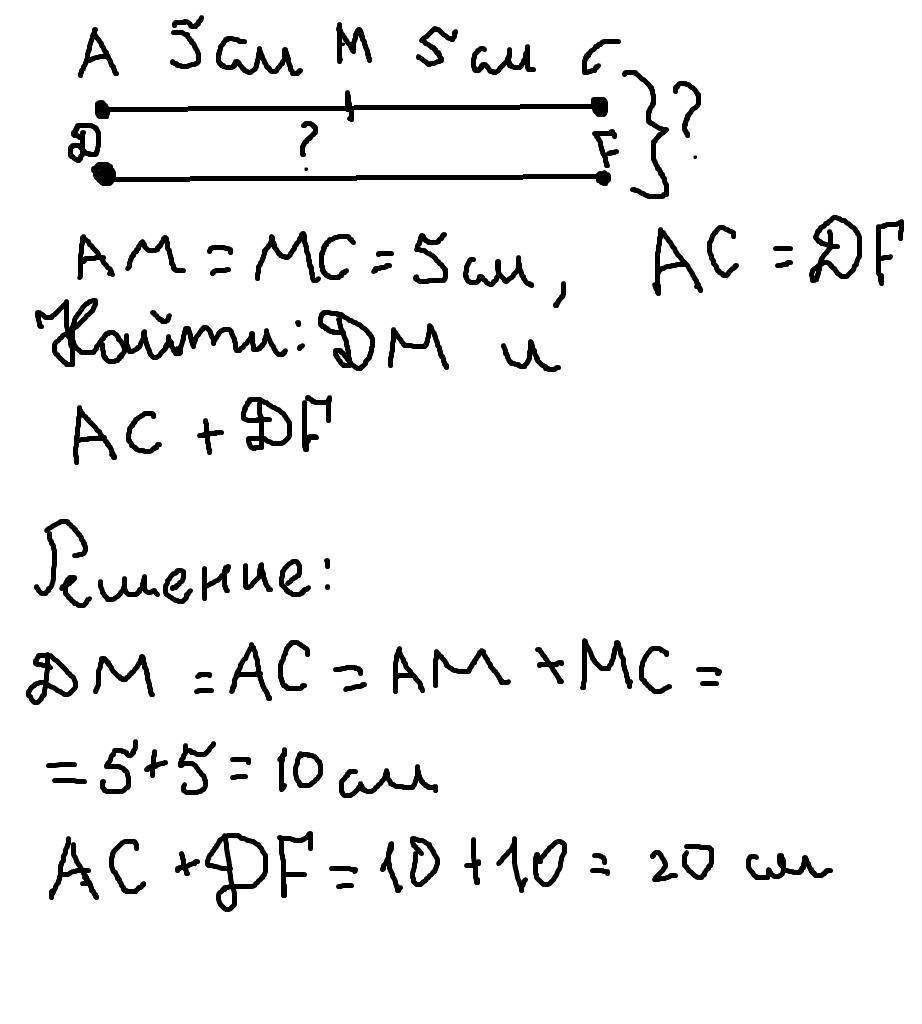 A 5 см M 5 см C
D ? F } ?
AM = MC = 5 см, AC = DF
Найти: DM и
AC + DF
Решение:
DM = AC = AM + MC =
= 5 + 5 = 10 см
AC + DF = 10 + 10 = 20 см